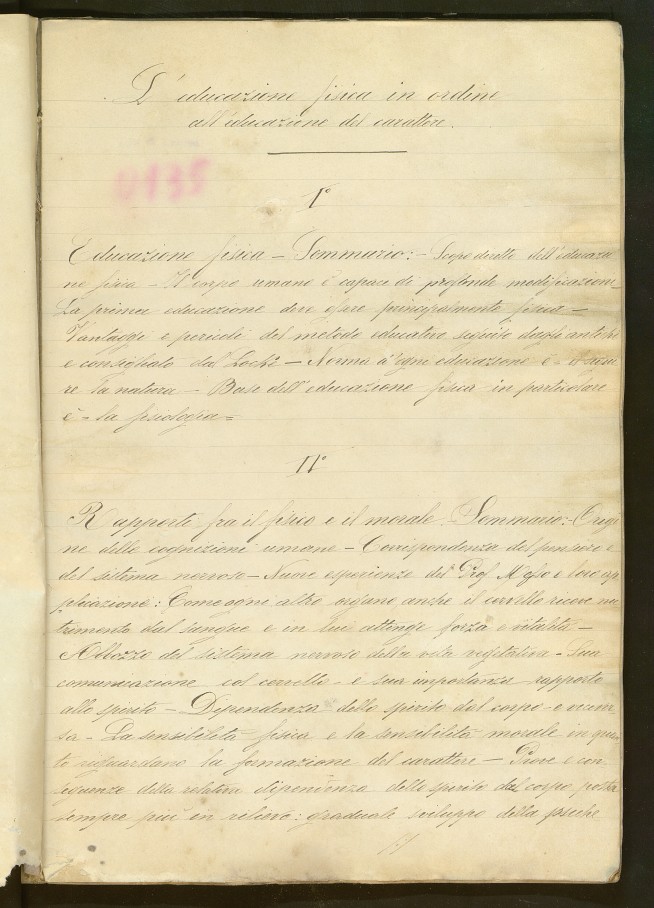 L'educazione fisica in ordine
all'educazione del carattere.
0135
I°
Educazione fisica - Sommario: - Scopo diretto dell'educazio
ne fisica - Il corpo umano è capace di profonde modificazioni_
La prima educazione deve essere principalmente fisica -
Vantaggi e pericoli del metodo educativo seguito dagli antichi
e consigliato dal Locke - Norma d'ogni educazione è
re la natura - Base dell'educazione fisica in particolare
è - la fisiologia =
II°
Rapporto fra il fisico e il morale. Sommario: - Origi
ne delle cognizioni umane - Corrispondenza del pensiero e
del sistema nervoso - Nuove esperienze del Prof Mosso e loro ap
plicazione: Come ogni altro organo anche il cervello riceve nu
trimento dal sangue e in lui attinge forza e vitalità -
Abbozzo del sistema nervoso della vita vegetativa - Sua
comunicazione col cervello - e sua importanza rapporto
allo spirito - Dipendenza dello spirito dal corpo e vicever
sa - La sensibilità fisica e la sensibilità morale in quan
to riguardano la formazione del carattere - Prove e con
seguenze della relativa dipendenza dello spirito dal corpo, posta
sempre più in rilievo: graduale sviluppo della psiche